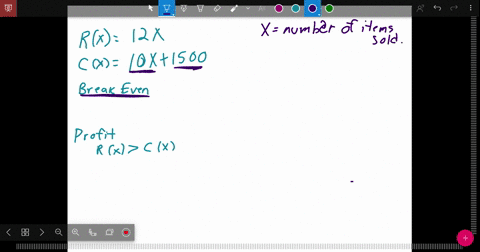 R(x) = 12x
x = number of items sold.
C(x) = 10x + 1500
Break Even
Profit
R(x) > C(x)